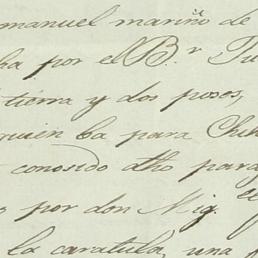 manuel mariñ de
ha por el B.r Tu
tierra y dos poses,
quien ba para Chih
conosido dho para
por don Mig.el
la caratula, una